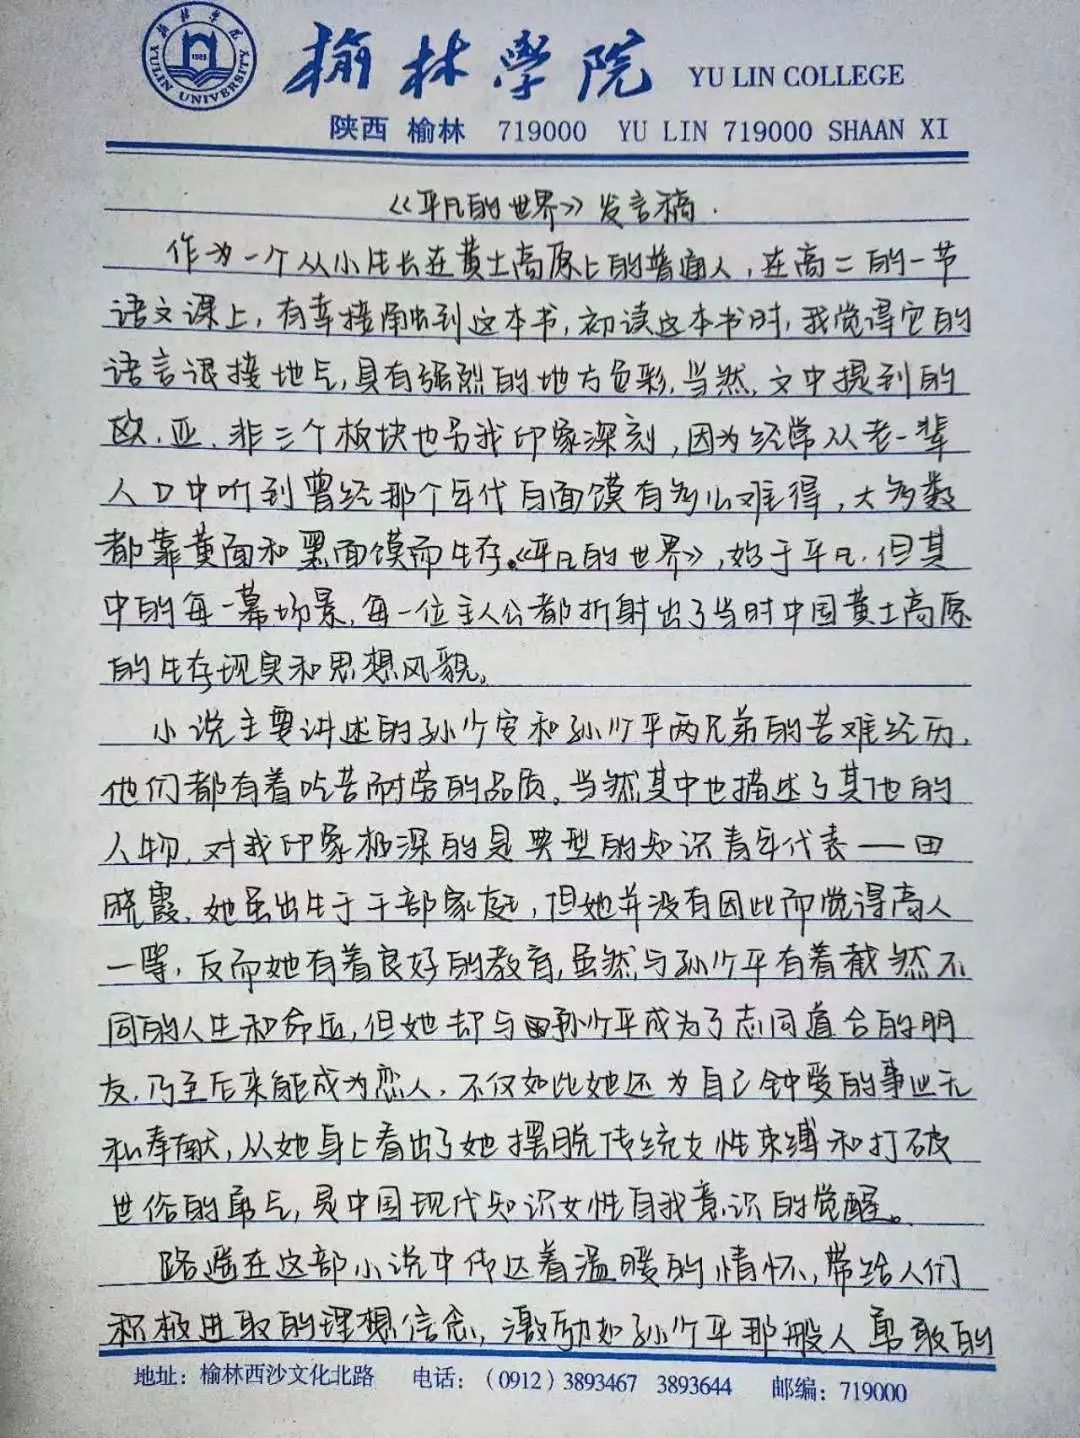 榆林学院 YULIN UNIVERSITY 1923
榆林学院 YU LIN COLLEGE
陕西 榆林 719000 YU LIN 719000 SHAAN XI
《平凡的世界》发言稿.
作为一个从小生长在黄土高原上的普通人，在高二的一节
语文课上，有幸接触到这本书，初读这本书时，我觉得它的
语言很接地气，具有强烈的地方色彩，当然，文中提到的
欧、亚、非三个板块也另我印象深刻，因为经常从老一辈
人口中听到曾经那个年代白面馍有多么难得，大多数
都靠黄面和黑面馍而生存。《平凡的世界》，始于平凡，但其
中的每一幕场景，每一位主人公都折射出了当时中国黄土高原
的生存现实和思想风貌。
小说主要讲述的孙少安和孙少平两兄弟的苦难经历，
他们都有着吃苦耐劳的品质。当然其中也描述了其他的
人物，对我印象极深的是典型的知识青年代表——田
晓霞，她虽出生于干部家庭，但她并没有因此而觉得高人
一等，反而她有着良好的教育，虽然与孙少平有着截然不
同的人生和命运，但她却与孙少平成为了志同道合的朋
友，乃至后来能成为恋人，不仅如此她还为自己钟爱的事业无
私奉献，从她身上看出了她摆脱传统女性束缚和打破
世俗的勇气，是中国现代知识女性自我意识的觉醒。
路遥在这部小说中传达着温暖的情怀，带给人们
积极进取的理想信念，激励如孙少平那般人勇敢的
地址：榆林西沙文化北路 电话：（0912）3893467 3893644 邮编：719000